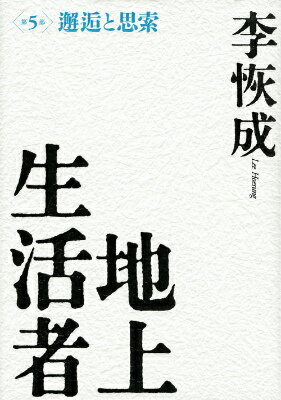 〈第5部〉邂逅と思索
李恢成
Lee Hoesung
地上
生活者